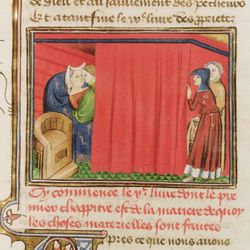 de dieu et au sauluement des pecheurs
Et atant fine le vᵉ liure des prietez
Cy commence le viᵉ liure dont le pre
mier chappitre est de la matiere de quoy
les choses materielles sont faictes
Apres ce que nous auons